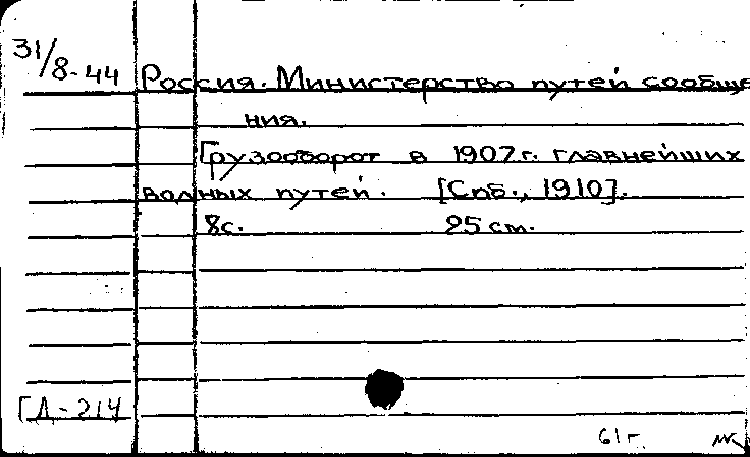 31/8-44
Россия. Министерство путей сообще
ния.
Грузооборот в 1907 г. главнейших
водных путей. [Спб., 1910].
8с. 25 см.
ГД-214
61г.